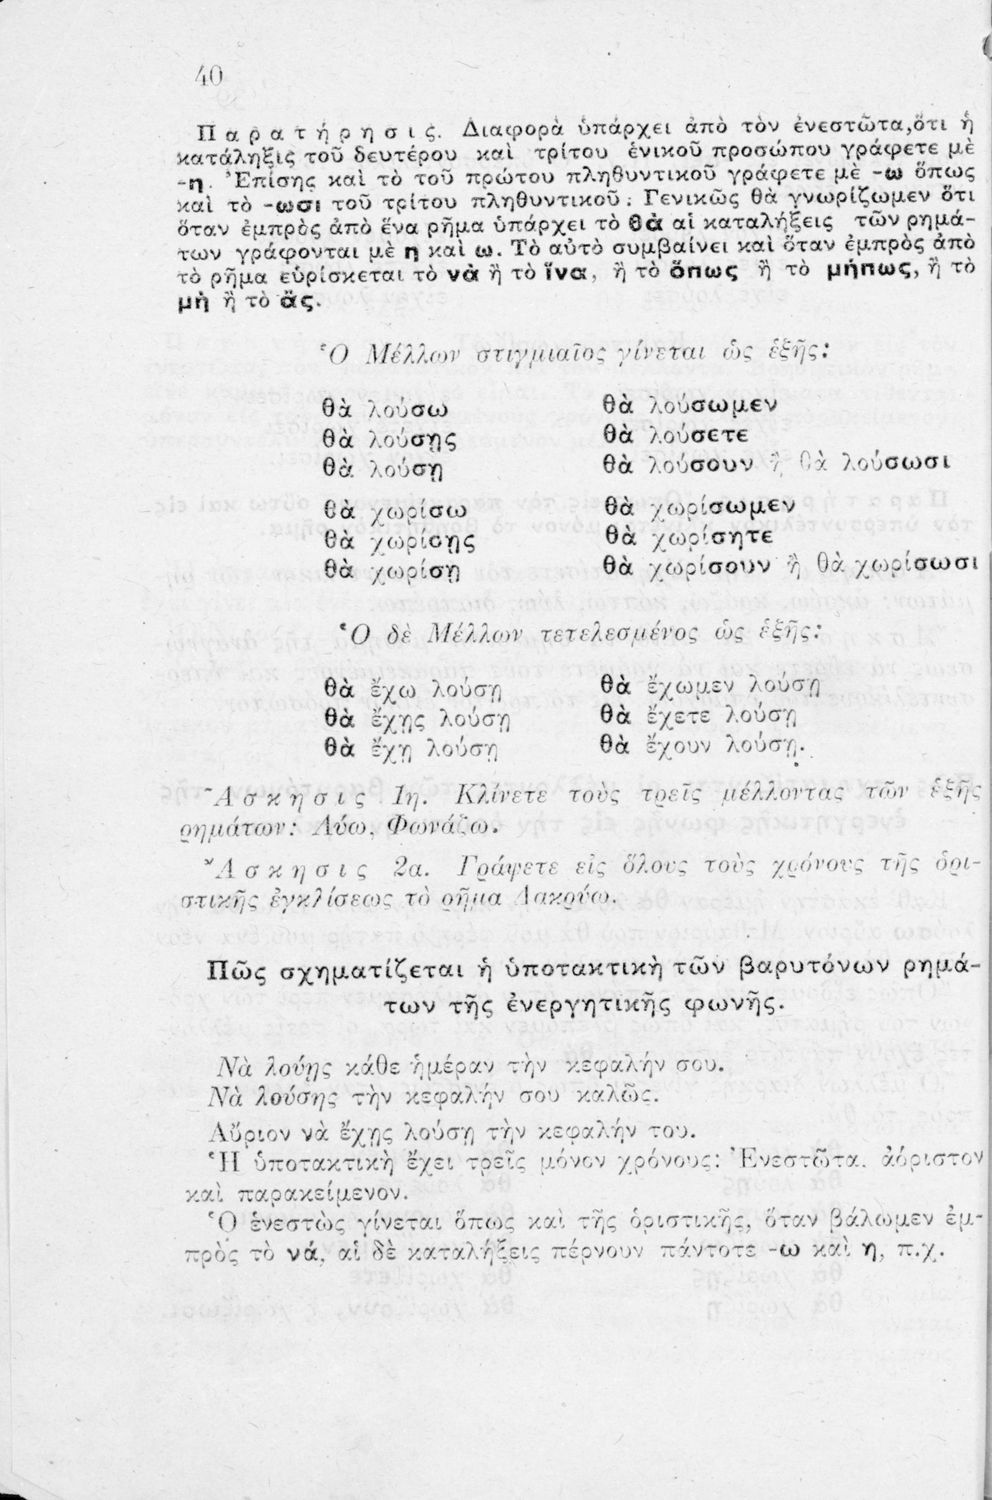 40
Παρατήρησις. Διαφορὰ ὑπάρχει ἀπὸ τὸν ἐνεστῶτα,ὅτι ἡ
κατάληξις τοῦ δευτέρου καὶ τρίτου ἑνικοῦ προσώπου γράφετε μὲ
-η. Ἐπίσης καὶ τὸ τοῦ πρώτου πληθυντικοῦ γράφετε μὲ -ω ὅπως
καὶ τὸ -ωσι τοῦ τρίτου πληθυντικοῦ. Γενικῶς θὰ γνωρίζωμεν ὅτι
ὅταν ἐμπρὸς ἀπὸ ἕνα ρῆμα ὑπάρχει τὸ θὰ αἱ καταλήξεις τῶν ρημά-
των γράφονται μὲ η καὶ ω. Τὸ αὐτὸ συμβαίνει καὶ ὅταν ἐμπρὸς ἀπὸ
τὸ ρῆμα εὑρίσκεται τὸ νὰ ἢ τὸ ἵνα, ἢ τὸ ὅπως ἢ τὸ μήπως, ἢ τὸ
μὴ ἢ τὸ ἂς.
Ὁ Μέλλων στιγμιαῖος γίνεται ὡς ἑξῆς:
θὰ λούσω θὰ λούσωμεν
θὰ λούσῃς θὰ λούσετε
θὰ λούσῃ θὰ λούσουν ἢ θὰ λούσωσι
θὰ χωρίσω θὰ χωρίσωμεν
θὰ χωρίσῃς θὰ χωρίσητε
θὰ χωρίσῃ θὰ χωρίσουν ἢ θὰ χωρίσωσι
Ὁ δὲ Μέλλων τετελεσμένος ὡς ἑξῆς:
θὰ ἔχω λούσῃ θὰ ἔχωμεν λούσῃ
θὰ ἔχῃς λούσῃ θὰ ἔχετε λούσῃ
θὰ ἔχῃ λούσῃ θὰ ἔχουν λούσῃ.
Ἄσκησις 1η. Κλίνετε τοὺς τρεῖς μέλλοντας τῶν ἑξῆς
ρημάτων: Λύω, Φωνάζω.
Ἄσκησις 2α. Γράψετε εἰς ὅλους τοὺς χρόνους τῆς ὁρι-
στικῆς ἐγκλίσεως τὸ ρῆμα Δακρύω.
Πῶς σχηματίζεται ἡ ὑποτακτικὴ τῶν βαρυτόνων ρημά-
των τῆς ἐνεργητικῆς φωνῆς.
Νὰ λούῃς κάθε ἡμέραν τὴν κεφαλήν σου.
Νὰ λούσης τὴν κεφαλήν σου καλῶς.
Αὔριον νὰ ἔχῃς λούσῃ τὴν κεφαλήν του.
Ἡ ὑποτακτικὴ ἔχει τρεῖς μόνον χρόνους: Ἐνεστῶτα. ἀόριστον
καὶ παρακείμενον.
Ὁ ἐνεστὼς γίνεται ὅπως καὶ τῆς ὁριστικῆς, ὅταν βάλωμεν ἐμ-
πρὸς τὸ νά, αἱ δὲ καταλήξεις πέρνουν πάντοτε -ω καὶ η, π.χ.